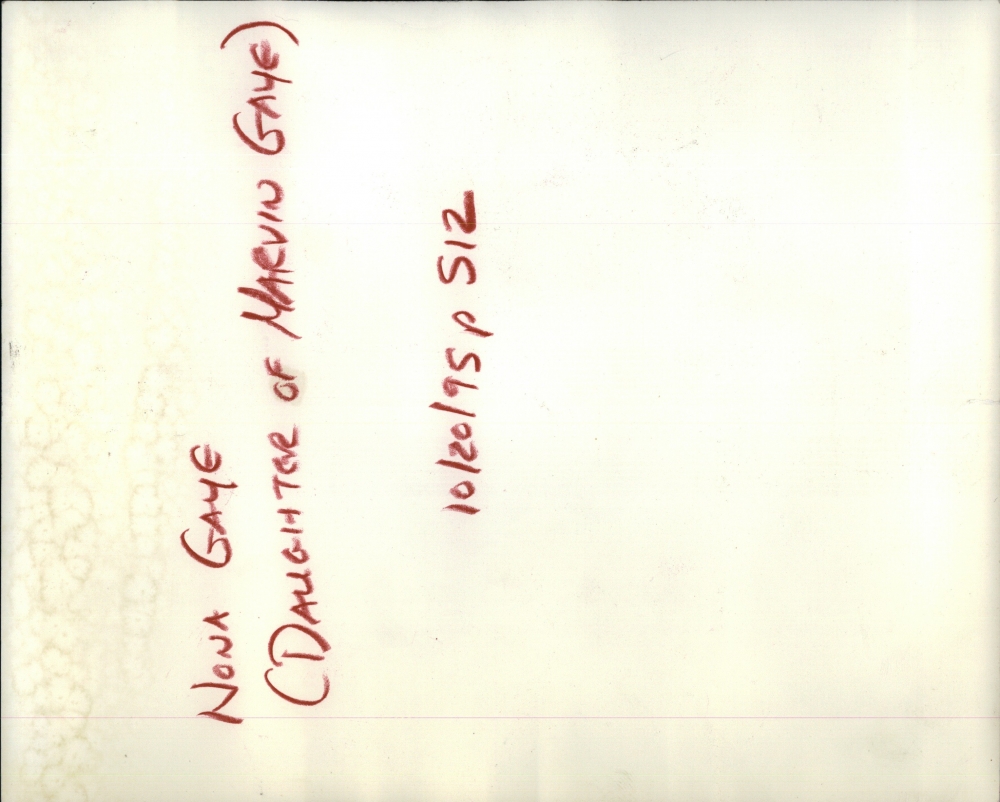 NONA GAYE
(DAUGHTER OF MARVIN GAYE)
10/20/95 p S12